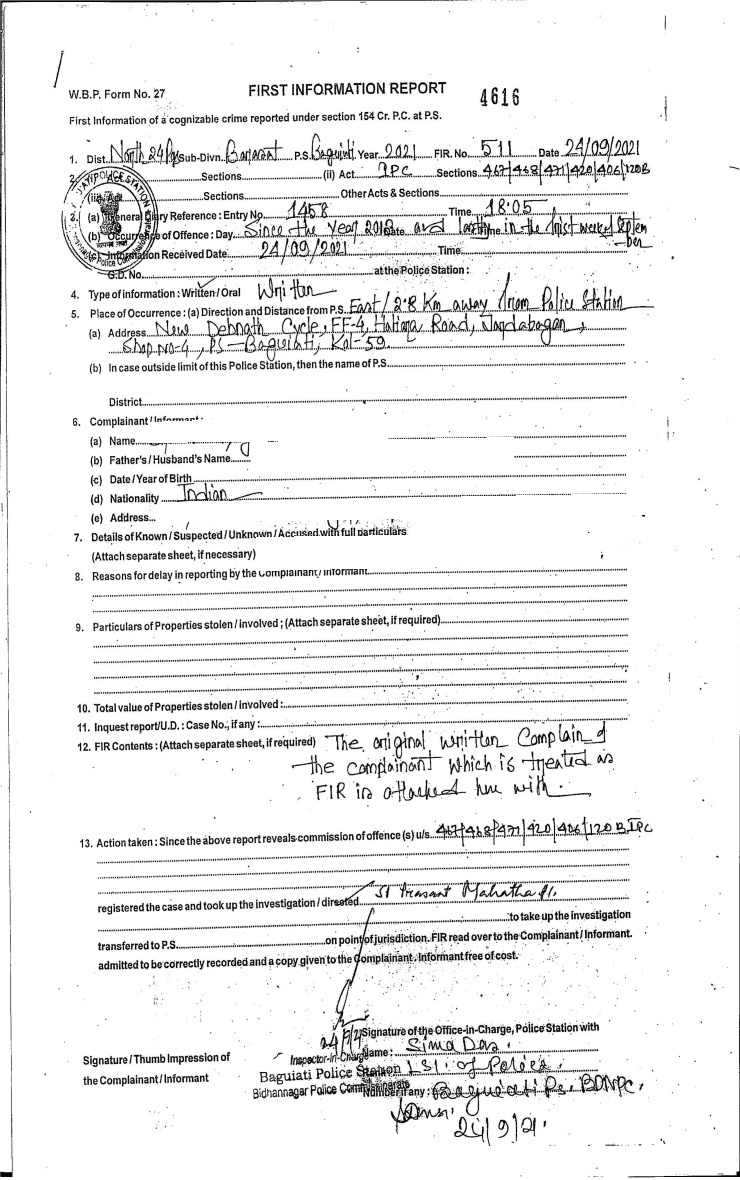 W.B.P. Form No. 27
FIRST INFORMATION REPORT
4616
First Information of a cognizable crime reported under section 154 Cr. P.C. at P.S.
1. Dist. North 24 Pgs Sub-Divn. Barasat P.S. Baguiati Year 2021 FIR. No. 511 Date 24/09/2021
2. Sections (ii) Act. IPC Sections 467/468/471/420/406/120B
(iii) Act Sections Other Acts & Sections
3. (a) General Diary Reference : Entry No. 1458 Time 18:05
(b) Occurrence of Offence : Day Since the Year 2018 and last Time in the first week of Septem
ber
(c) Information Received Date 24/09/2021 Time
G.D. No. at the Police Station :
4. Type of information : Written / Oral Written
5. Place of Occurrence : (a) Direction and Distance from P.S. East / 2.8 Km away from Police Station
(a) Address New Debnath Cycle, FF-4, Hatiara Road, Jagdabagan,
Shop No-4, PS-Baguiati, Kol-59.
(b) In case outside limit of this Police Station, then the name of P.S.
District
6. Complainant /
(a) Name
(b) Father's / Husband's Name
(c) Date / Year of Birth
(d) Nationality Indian
(e) Address
7. Details of Known / Suspected / Unknown / Accused with full particulars
(Attach separate sheet, if necessary)
8. Reasons for delay in reporting by the Complainant / Informant
9. Particulars of Properties stolen / involved ; (Attach separate sheet, if required)
10. Total value of Properties stolen / involved :
11. Inquest report/U.D. : Case No., if any :
12. FIR Contents : (Attach separate sheet, if required) The original written Complain of
the complainant which is treated as
FIR is attached here with.
13. Action taken : Since the above report reveals commission of offence (s) u/s. 467/468/471/420/406/120B IPC
registered the case and took up the investigation / directed SI Prasant Mahatha
to take up the investigation
transferred to P.S. on point of jurisdiction. FIR read over to the Complainant / Informant.
admitted to be correctly recorded and a copy given to the Complainant. Informant free of cost.
Signature of the Office-in-Charge, Police Station with
Signature / Thumb Impression of
the Complainant / Informant
Inspector-in-Charge
Baguiati Police Station
Bidhannagar Police Commissionerate
Name : Sima Das.
LSI. of Police.
Number if any : Baguiati Ps. BDNPC.
24/9/21.